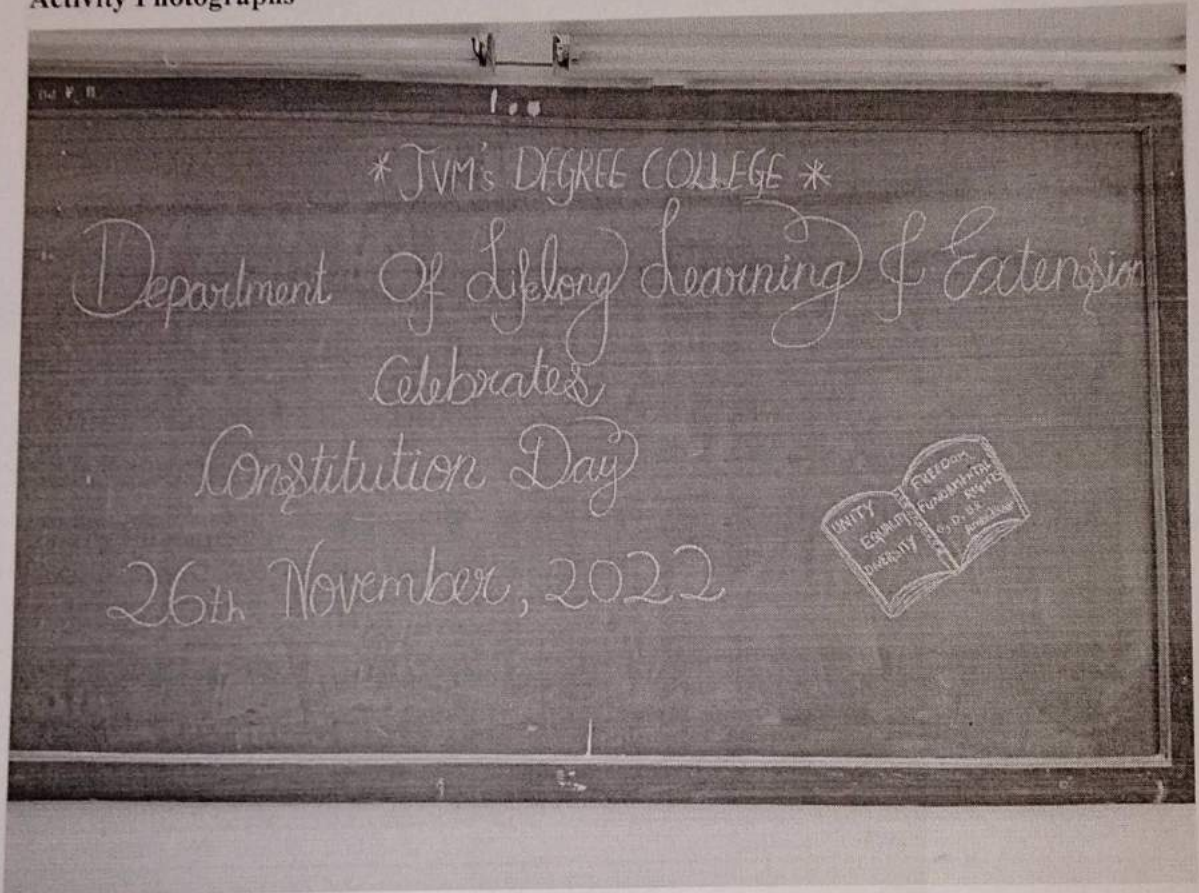 Activity Photographs
* JVM's DEGREE COLLEGE *
Department Of Lifelong Learning & Extension
Celebrates
Constitution Day
26th November, 2022
UNITY
EQUALITY
DIVERSITY
FREEDOM
FUNDAMENTAL
RIGHTS
AMBEDKAR